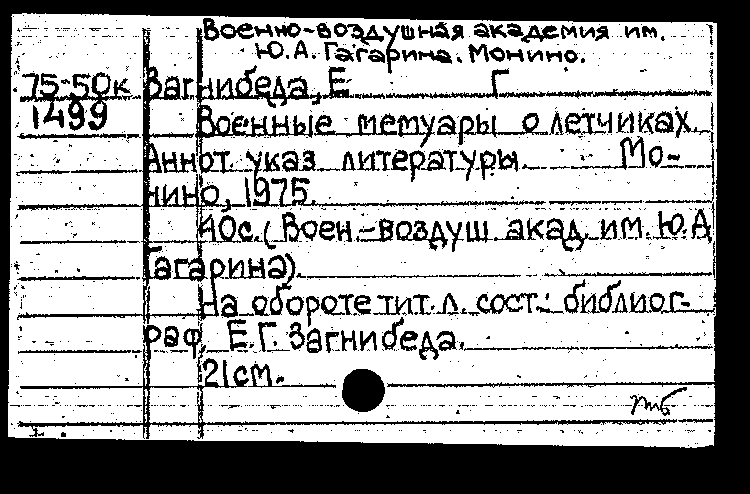 Военно-воздушная академия им.
Ю.А. Гагарина. Монино.
75-50к Загнибеда, Е Г
1499 Военные мемуары о летчиках.
Аннот. указ литературы. Мо-
нино, 1975.
40с. (Воен.-воздуш. акад. им. Ю.А
Гагарина).
На обороте тит. л. сост.: библиог-
раф. Е.Г. Загнибеда.
21см.